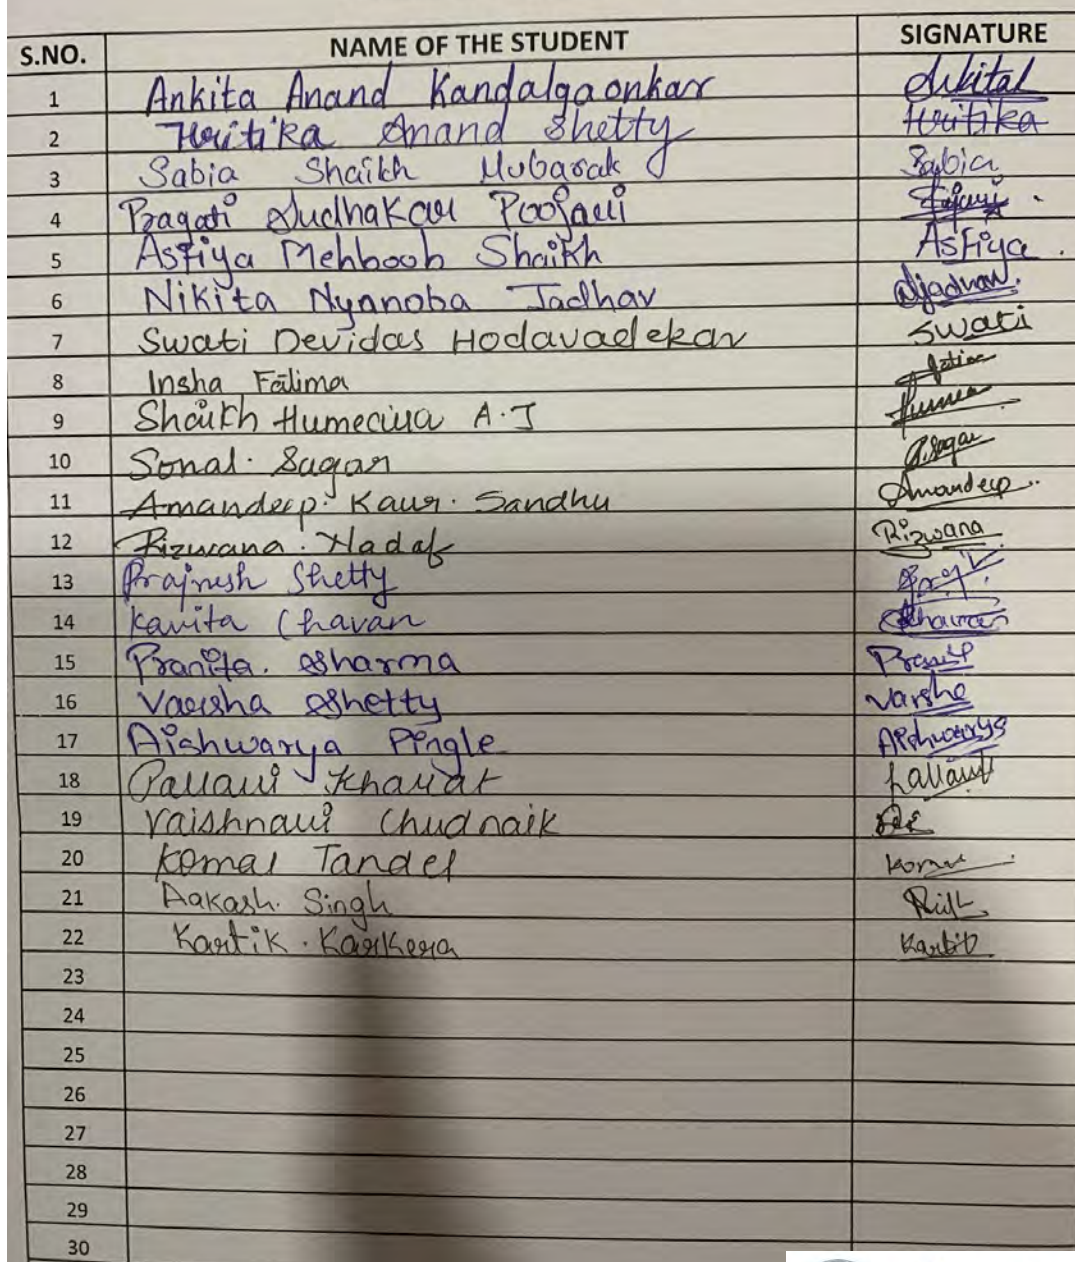 S.NO. NAME OF THE STUDENT SIGNATURE
1 Ankita Anand Kandalgaonkar Ankital
2 Hritika Anand Shetty Hritika
3 Sabia Shaikh Mubarak Sabia
4 Pragati Sudhakar Poojari
5 Asfiya Mehboob Shaikh Asfiya.
6 Nikita Nyanoba Jadhav Njadhav.
7 Swati Devidas Hodavadekar Swati
8 Insha Fatima
9 Shaikh Humeciya A.J
10 Sonal. Sagar S.Sagar
11 Amandeep. Kaur. Sandhu Amandeep..
12 Rizwana. Nadaf Rizwana
13 Prajnesh Shetty
14 Kavita Chavan
15 Pranita. Sharma
16 Varsha Shetty Varsha
17 Aishwarya Pingle Aishwarya
18 Pallavi Kharat Pallavi
19 Vaishnavi Chudnaik
20 Komal Tandel
21 Aakash. Singh
22 Kartik. Karkera Kartik
23
24
25
26
27
28
29
30